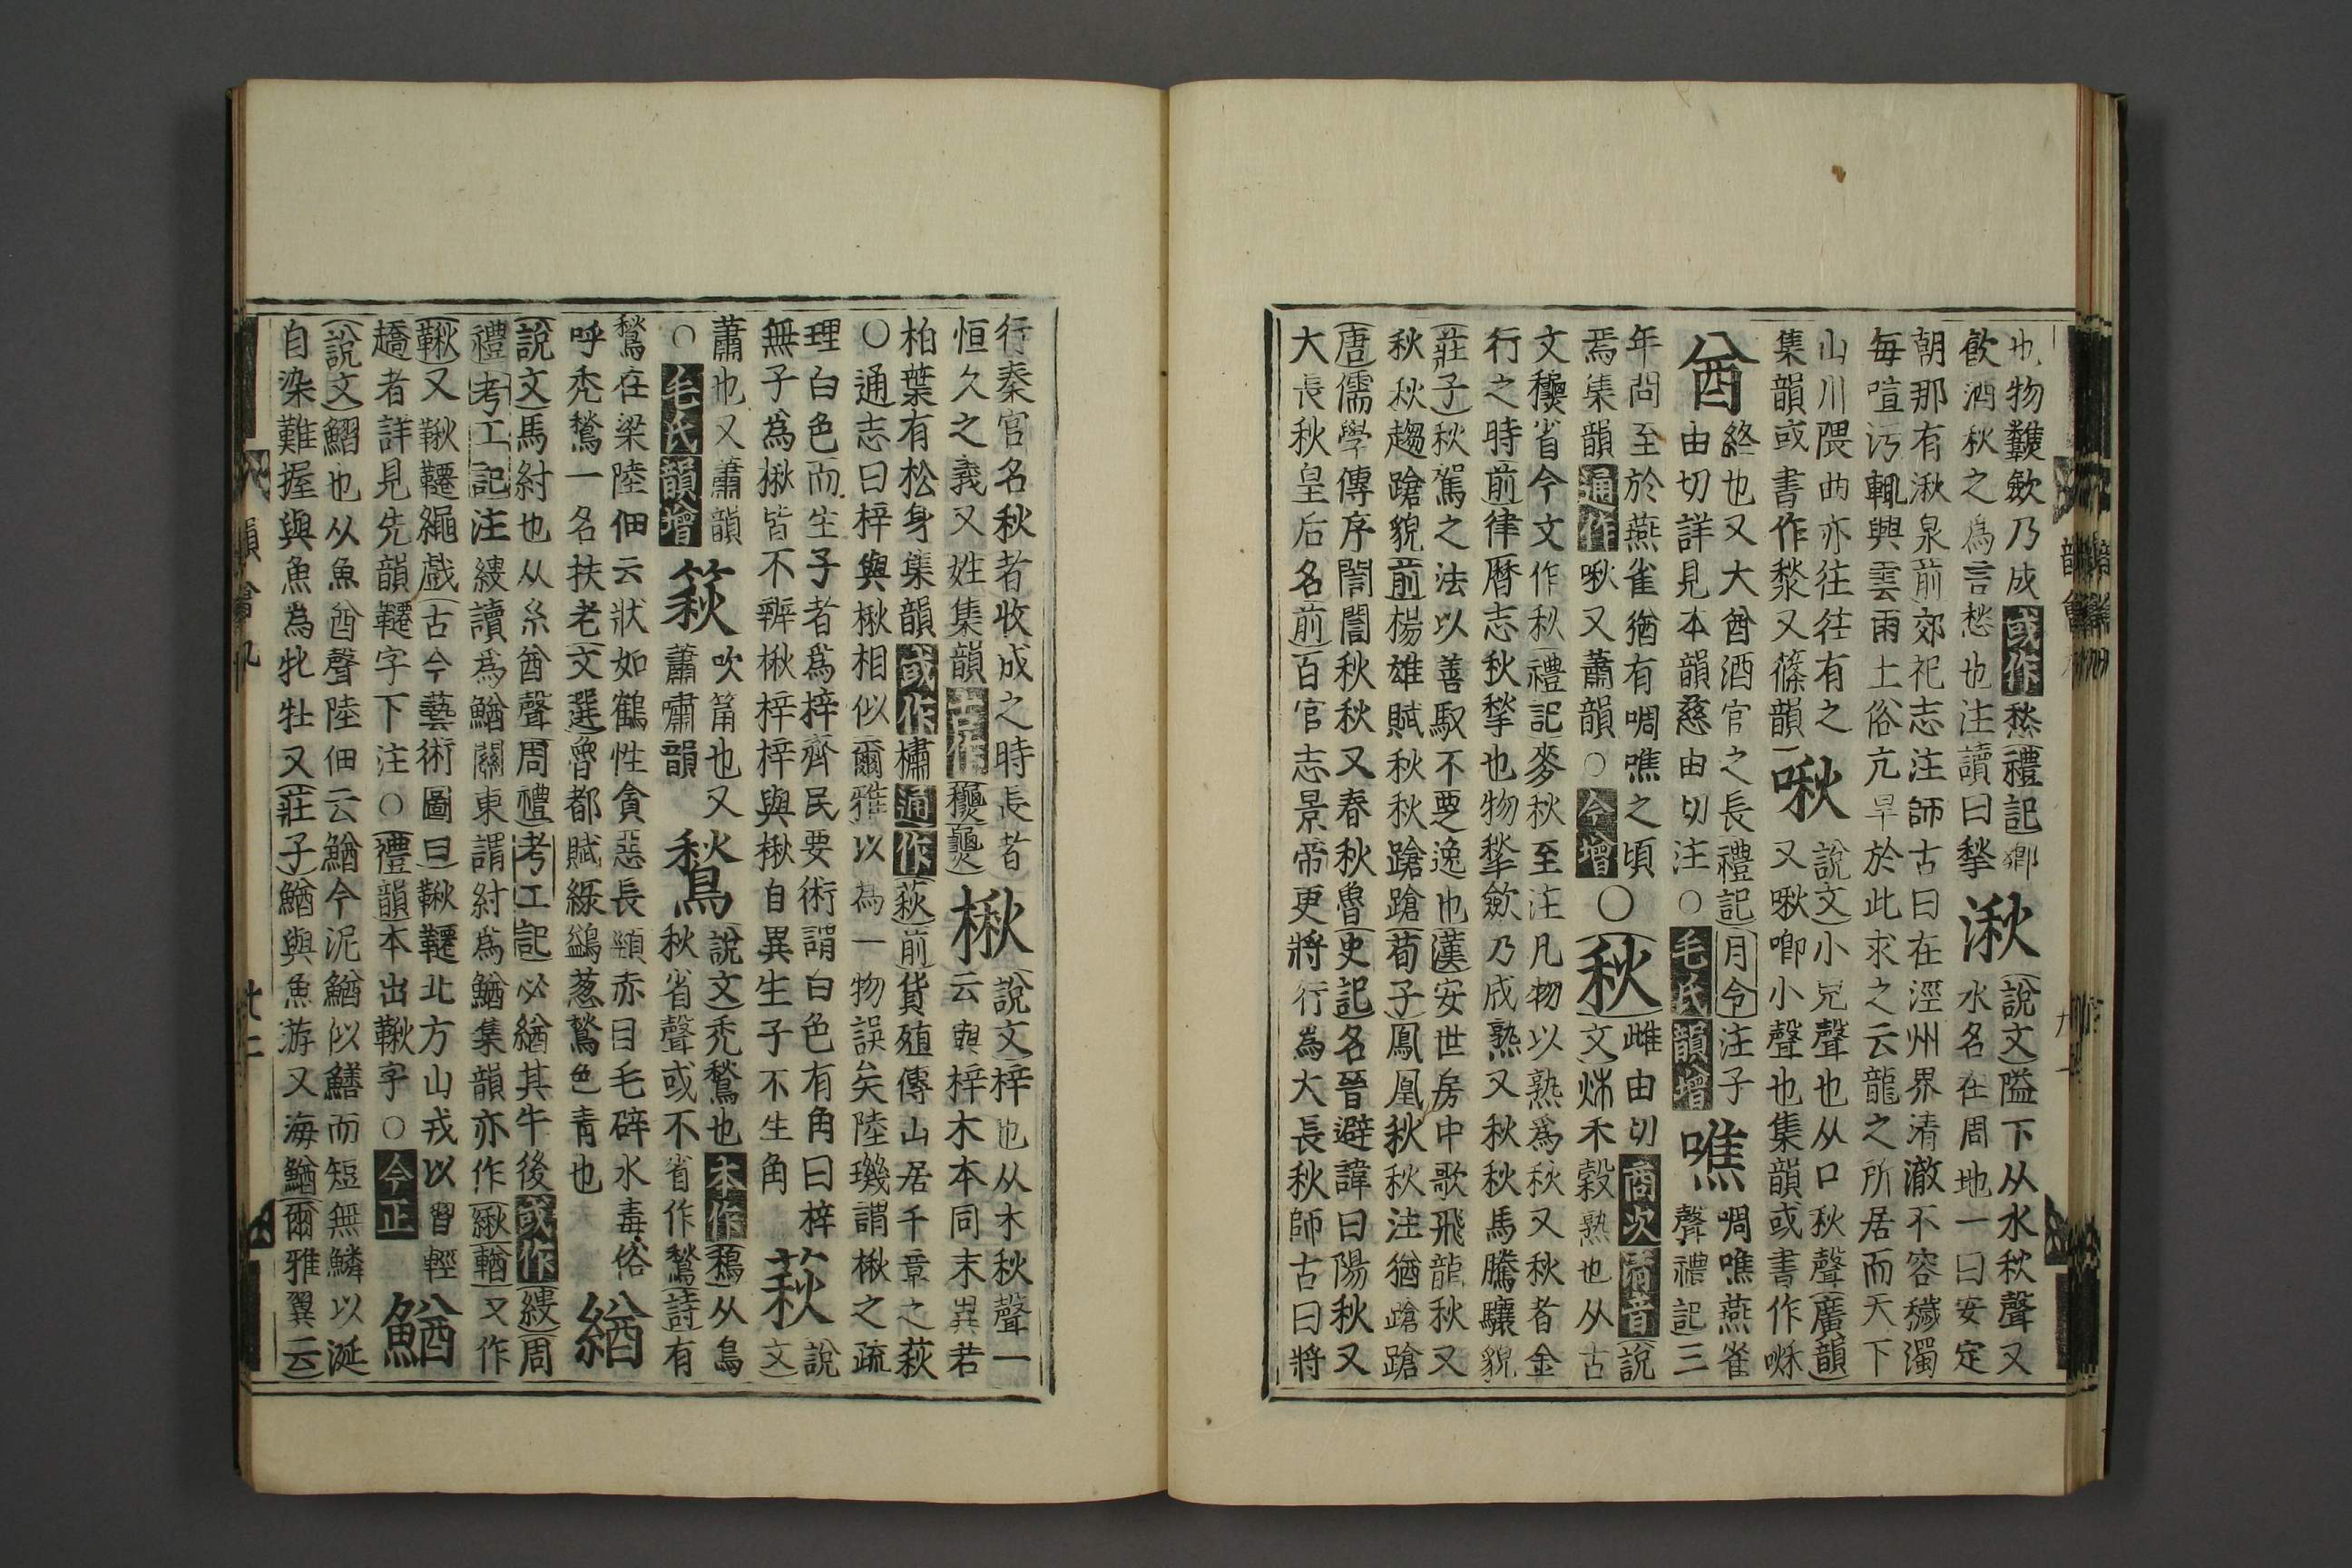 也物𪏰歛乃成或作愁禮記鄉
飲酒秋之爲言愁也注讀曰揫
湫
說文隘下从水秋聲又
水名在周地一曰安定
朝那有湫泉前郊祀志注師古曰在涇州界清澈不容穢濁
每喧汚輒興雲雨土俗亢旱於此求之云龍之所居而天下
山川隈曲亦往往有之
集韻或書作湬又篠韻
啾
說文小兒聲也从口秋聲廣韻
又啾喞小聲也集韻或書作噝
酋
終也又大酋酒官之長禮記月令注子
由切詳見本韻慈由切注○毛氏韻增
噍
啁噍燕雀
聲禮記三
年問至於燕雀猶有啁噍之頃
焉集韻通作啾又蕭韻○今增
○
秋
雌由切商次清音說
文秌禾穀熟也从古
文𥤛省今文作秋禮記麥秋至注凡物以熟爲秋又秋者金
行之時前律曆志秋揫也物揫歛乃成熟又秋秋馬騰驤貌
莊子秋駕之法以善馭不要逸也漢安世房中歌飛龍秋又
秋秋趨蹌貌前楊雄賦秋秋蹌蹌荀子鳳凰秋秋注猶蹌蹌
唐儒學傳序誾誾秋秋又春秋魯史記名晉避諱曰陽秋又
大長秋皇后名前百官志景帝更將行爲大長秋師古曰將
行秦官名秋者收成之時長者
恒久之義又姓集韻古作𥤛龝
楸
說文梓也从木秋聲一
云與梓木本同末異若
柏葉有松身集韻或作橚通作萩前貨殖傳山居千章之萩
○通志曰梓與楸相似爾雅以為一物誤矣陸璣謂楸之疏
理白色而生子者爲梓齊民要術謂白色有角曰梓
無子為楸皆不辨楸梓梓與楸自異生子不生角
萩
說
文
蕭也又蕭韻
○毛氏韻增
篍
吹筩也又
蕭嘯韻
鶖
說文禿鶖也本作䳋从鳥
秋省聲或不省作鶖詩有
鶖在梁陸佃云狀如鶴性貪惡長頸赤目毛辟水毒俗
呼禿鶖一名扶老文選魯都賦綠鷁葱鶖色青也
緧
說文馬紂也从糸酋聲周禮考工記必緧其牛後或作緮周
禮考工記注緮讀爲鰌關東謂紂為鰌集韻亦作緧輶又作
鞦又鞦韆繩戲古今藝術圖曰鞦韆北方山戎以習輕
趫者詳見先韻韆字下注○禮韻本出鞦字○今正
鰌
說文鰼也从魚酋聲陸佃云鰌今泥鰌似鱔而短無鱗以涎
自染難握與魚為牝牡又莊子鰌與魚游又海鰌爾雅翼云
韻會九